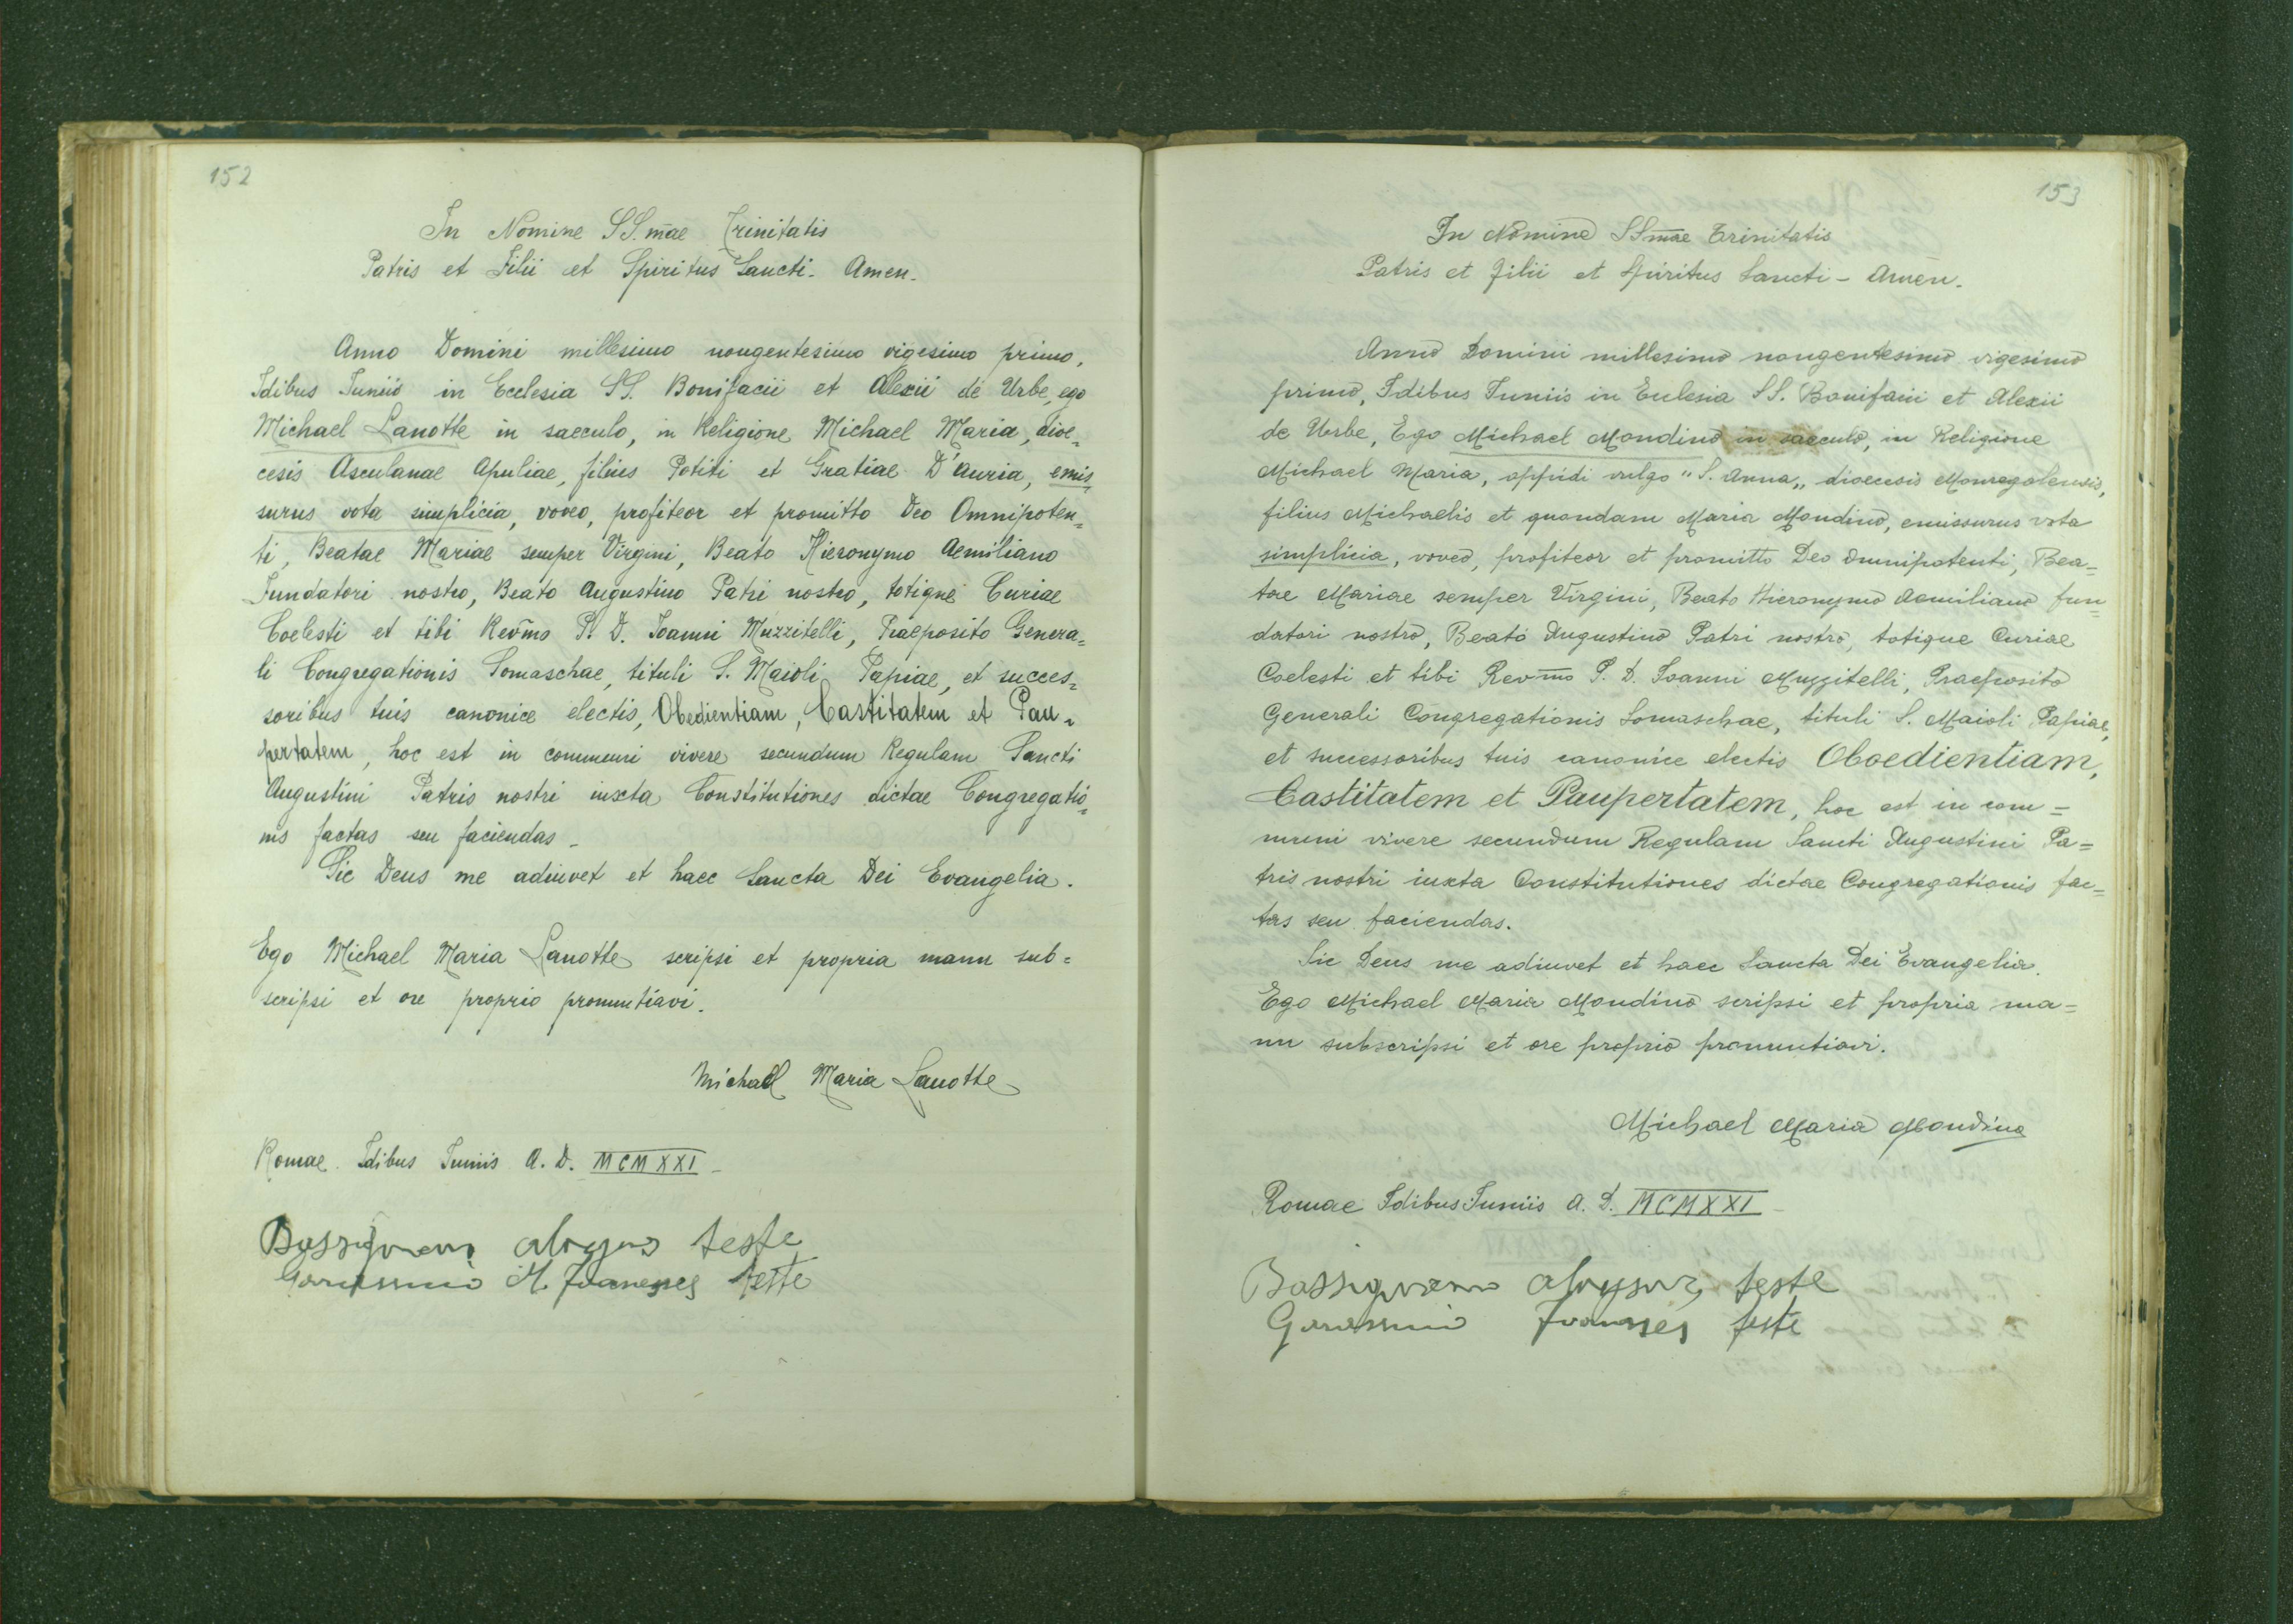 152
In Nomine SS.mae Trinitatis
Patris et Filii et Spiritus Sancti. Amen.
Anno Domini millesimo nongentesimo vigesimo primo,
Idibus Juniis in Ecclesia SS. Bonifacii et Alexii de Urbe, ego
Michael Lanotte in saeculo, in Religione Michael Maria, dioe=
cesis Asculanae Apuliae, filius Potiti et Gratiae D'Auria, emis=
surus vota simplicia, voveo, profiteor et promitto Deo Omnipoten=
ti, Beatae Mariae semper Virgini, Beato Hieronymo Aemiliano
Fundatori nostro, Beato Augustino Patri nostro, totique Curiae
Coelesti et tibi Rev̅mo P. D. Joanni Muzzitelli, Praeposito Genera=
li Congregationis Somaschae, tituli S. Maioli, Papiae, et succes=
soribus tuis canonice electis, Obedientiam, Castitatem et Pau=
pertatem, hoc est in communi vivere secundum Regulam Sancti
Augustini Patris nostri iuxta Constitutiones dictae Congregatio=
nis factas seu faciendas _
Sic Deus me adiuvet et haec Sancta Dei Evangelia.
Ego Michael Maria Lanotte scripsi et propria manu sub=
scripsi et ore proprio pronuntiavi.
Michael Maria Lanotte
Romae. Idibus Juniis A. D. MCMXXI _
teste
teste
153
In Nomine SSmae Trinitatis
Patris et Filii et Spiritus Sancti - Amen.
Anno Domini millesimo nongentesimo vigesimo
primo, Idibus Juniis in Ecclesia SS. Bonifacii et Alexii
de Urbe, Ego Michael Mondino in saeculo, in Religione
Michael Maria, oppidi vulgo "S. Anna„ dioecesis Monregalensis,
filius Michaelis et quondam Maria Mondino, emissurus vota
simplicia, voveo, profiteor et promitto Deo Omnipotenti, Bea=
tae Mariae semper Virgini, Beato Hieronymo Aemiliano fun=
datori nostro, Beato Augustino Patri nostro, totique Curiae
Coelesti et tibi Rev̅mo P. D. Joanni Muzzitelli, Praeposito
Generali Congregationis Somaschae, tituli S. Maioli Papiae,
et successoribus tuis canonice electis Oboedientiam,
Castitatem et Paupertatem, hoc est in com=
muni vivere secundum Regulam Sancti Augustini Pa=
tris nostri iuxta Constitutiones dictae Congregationis fac=
tas seu faciendas.
Sic Deus me adiuvet et haec Sancta Dei Evangelia.
Ego Michael Maria Mondino scripsi et propria ma=
nu subscripsi et ore proprio pronuntiavi.
Michael Maria Mondino
Romae Idibus Juniis A. D. MCMXXI _
teste
teste